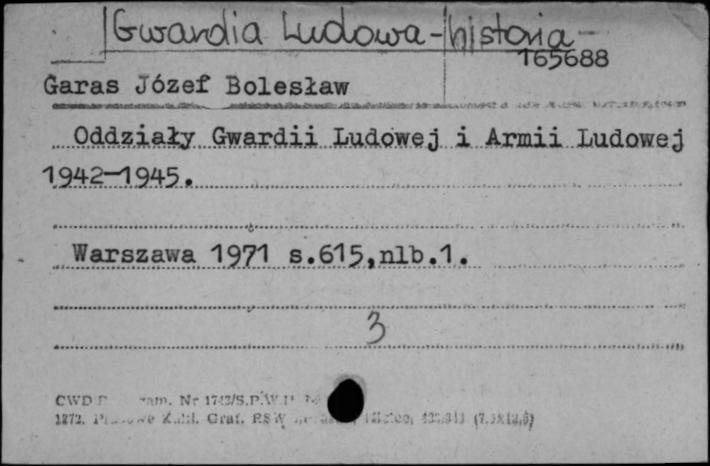 Gwardia Ludowa - historia -
165688
Garas Józef Bolesław
Oddziały Gwardii Ludowej i Armii Ludowej
1942-1945.
Warszawa 1971 s.615,nlb.1.
3
CWD zam. Nr
Graf. RSW